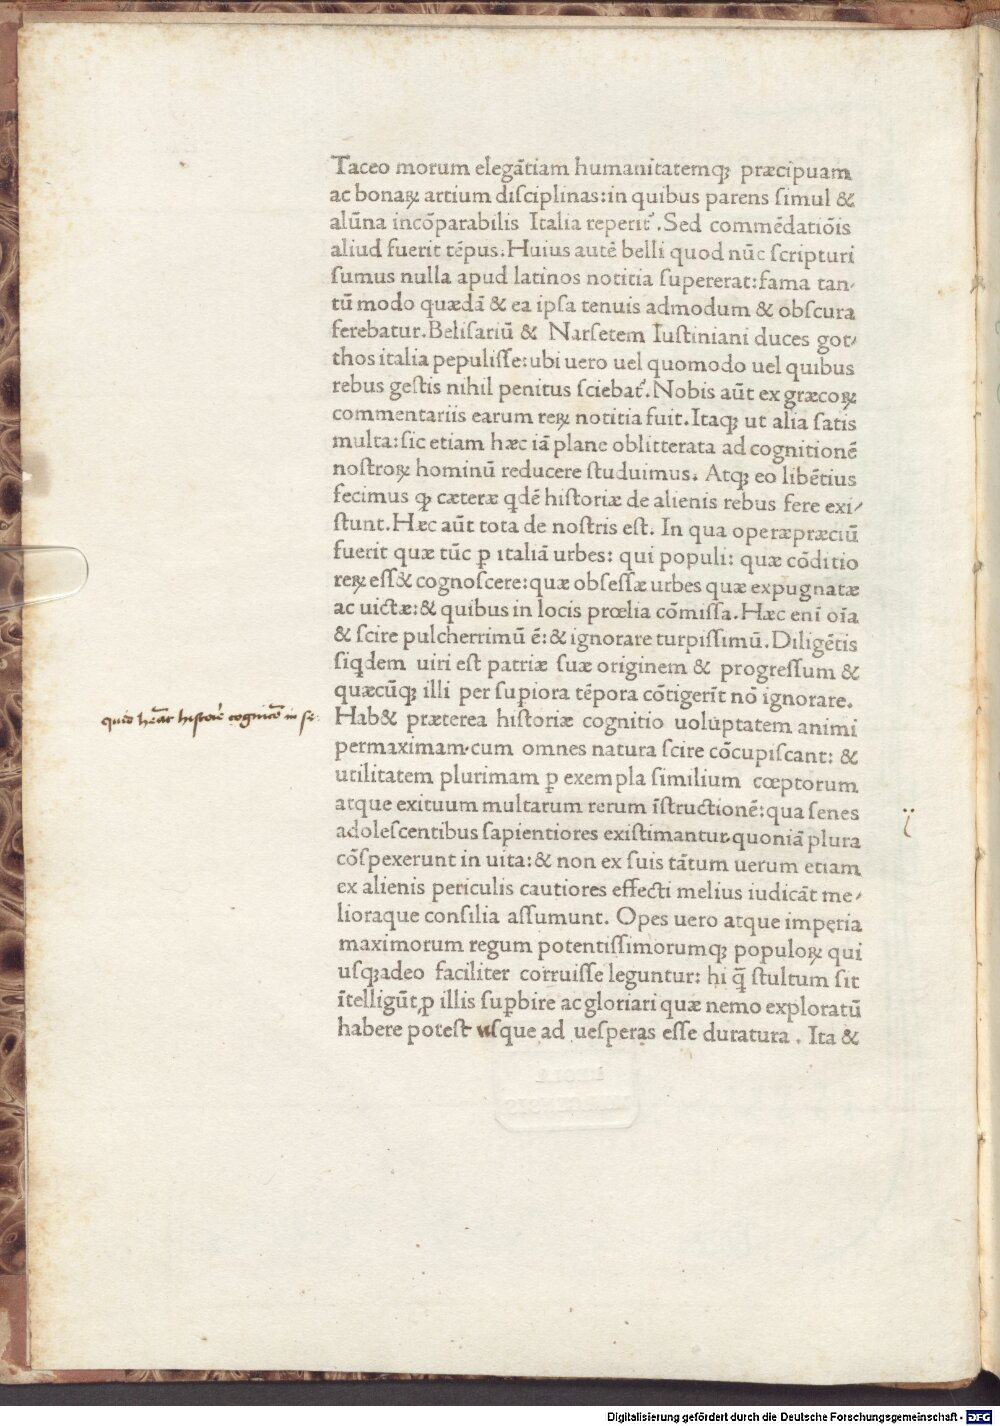 Taceo morum elegãtiam humanitatemqꝫ præcipuam
ac bonaꝝ artium diſciplinas:in quibus parens ſimul &
alũna incõparabilis Italia reperit᷑.Sed commẽdatiõis
aliud fuerit tẽpus.Huius autẽ belli quod nũc ſcripturi
ſumus nulla apud latinos notitia ſupererat:fama tan-
tũ modo quædã & ea ipſa tenuis admodum & obſcura
ferebatur.Beliſariũ & Narſetem Iuſtiniani duces got-
thos italia pepuliſſe:ubi uero uel quomodo uel quibus
rebus geſtis nihil penitus ſciebat᷑.Nobis aũt ex græcoꝝ
commentariis earum reꝝ notitia fuit.Itaqꝫ ut alia ſatis
multa:ſic etiam hæc iã plane oblitterata ad cognitionẽ
noſtroꝝ hominũ reducere ſtuduimus. Atqꝫ eo libẽtius
fecimus qꝫ cæteræ qdẽ hiſtoriæ de alienis rebus fere exi-
ſtunt.Hæc aũt tota de noſtris eſt. In qua operæpræciũ
fuerit quæ tũc ꝑ italiã urbes: qui populi: quæ cõditio
reꝝ eſſ& cognoſcere:quæ obſeſſæ urbes quæ expugnatæ
ac uictæ:& quibus in locis prœlia cõmiſſa.Hæc enĩ oĩa
& ſcire pulcherrimũ ẽ:& ignorare turpiſſimũ.Diligẽtis
ſiqdem uiri eſt patriæ ſuæ originem & progreſſum &
quæcũqꝫ illi per ſupiora tẽpora cõtigerĩt nõ ignorare.
Hab& præterea hiſtoriæ cognitio uoluptatem animi
permaximam.cum omnes natura ſcire cõcupiſcant: &
utilitatem plurimam ꝑ exempla ſimilium cœptorum
atque exituum multarum rerum ĩſtructionẽ:qua ſenes
adoleſcentibus ſapientiores exiſtimantur.quoniã plura
cõſpexerunt in uita:& non ex ſuis tãtum uerum etiam
ex alienis periculis cautiores effecti melius iudicãt me-
lioraque conſilia aſſumunt. Opes uero atque imperia
maximorum regum potentiſſimorumqꝫ populoꝝ qui
uſqꝫadeo faciliter corruiſſe leguntur: hi q̃ ſtultum ſit
ĩtelligũt,ꝓ illis ſuꝑbire ac gloriari quæ nemo exploratũ
habere poteſt uſque ad ueſperas eſſe duratura . Ita &
Digitalisierung gefördert durch die Deutsche Forschungsgemeinschaft - DFG